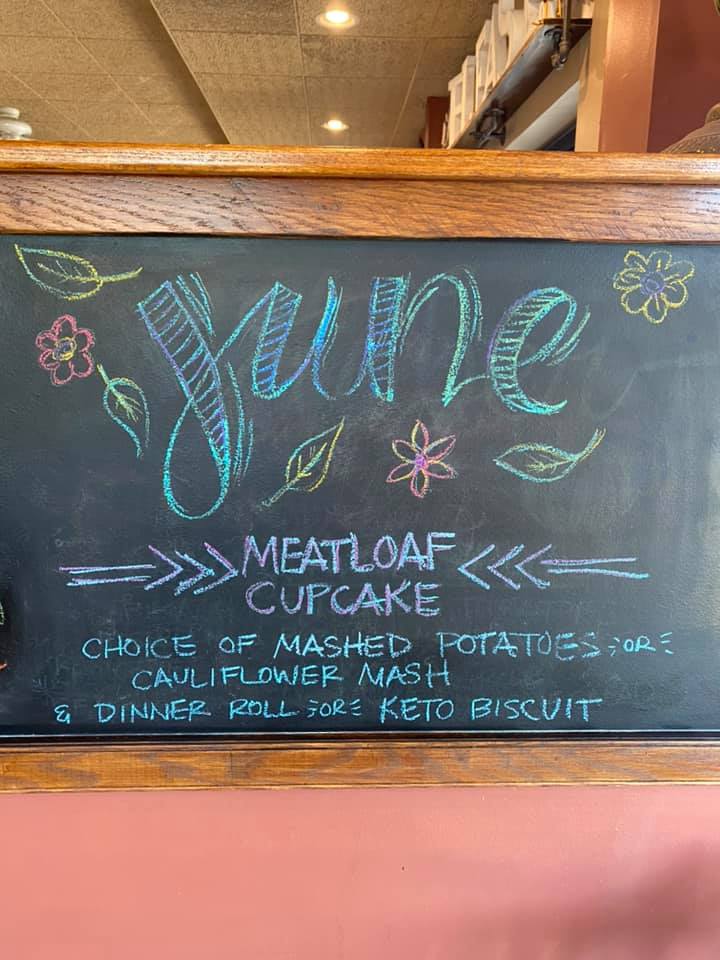 June
MEATLOAF
CUPCAKE
CHOICE OF MASHED POTATOES OR
CAULIFLOWER MASH
& DINNER ROLL OR KETO BISCUIT